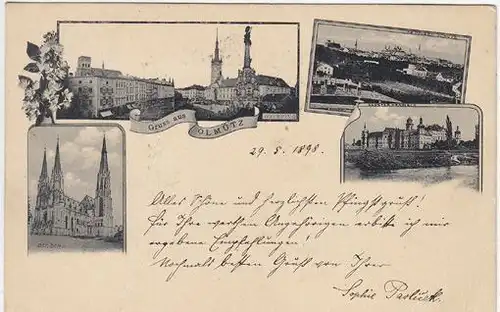 Gruss aus
OLMÜTZ
29. 5. 1898.
Alles Schöne und herzlichsten Pfingstgruß!
Für Ihre werthen Angehörigen erbitte ich mir
ergebene Empfehlungen!
Nochmals besten Gruß von Ihrer
Sophie